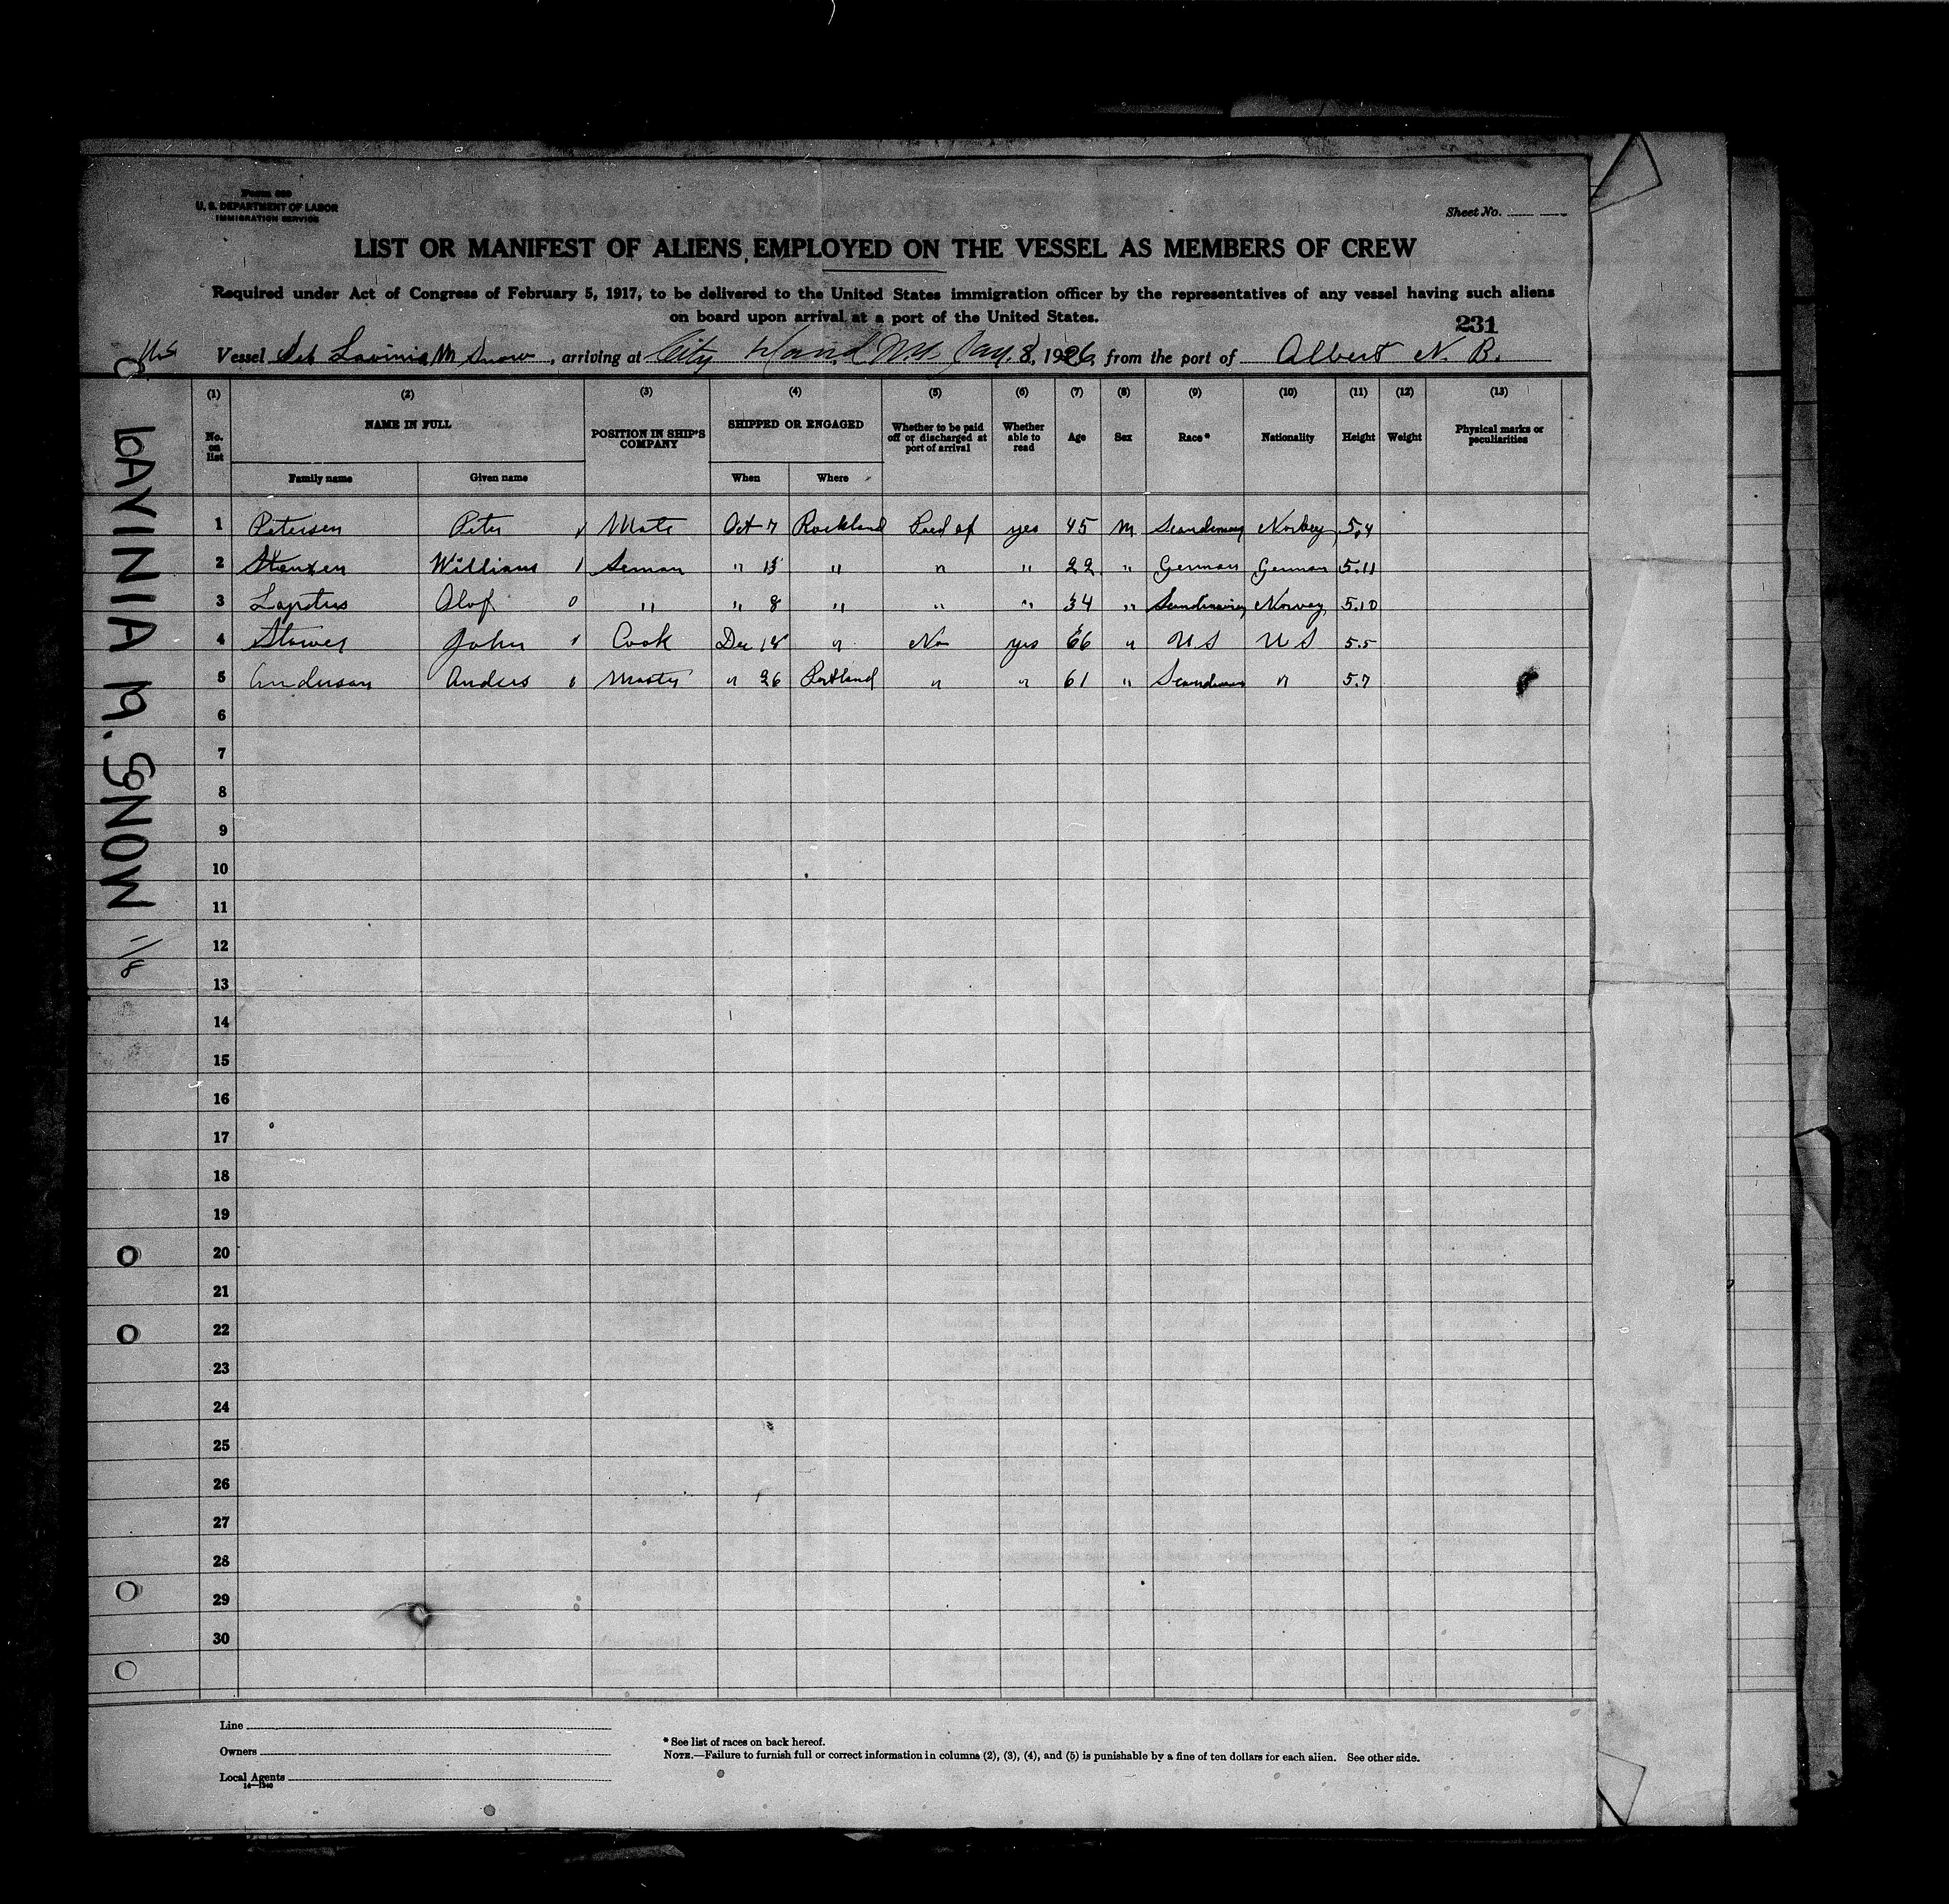 Form 680
U. S. DEPARTMENT OF LABOR
IMMIGRATION SERVICE
Sheet No.
LIST OR MANIFEST OF ALIENS EMPLOYED ON THE VESSEL AS MEMBERS OF CREW
Required under Act of Congress of February 5, 1917, to be delivered to the United States immigration officer by the representatives of any vessel having such aliens
on board upon arrival at a port of the United States.
231
Vessel Sch Lavinia M Snow, arriving at City Island N.Y. Jany. 8, 1926, from the port of Albert N. B.
(1) (2) (3) (4) (5) (6) (7) (8) (9) (10) (11) (12) (13)
No. on list NAME IN FULL POSITION IN SHIP'S COMPANY SHIPPED OR ENGAGED Whether to be paid off or discharged at port of arrival Whether able to read Age Sex Race* Nationality Height Weight Physical marks or peculiarities
Family name Given name When Where
1 Petersen Peter Mate Oct 7 Rockland Paid of yes 45 M Norwey 5.4
2 William Seman " 15 " " " 22 " German German 5.11
3 Olof " " 8 " " " 34 " Norway 5.10
4 Stower John Cook Dec 14 " No yes 66 " U S U S 5.5
5 Anderson Anders Master " 26 Portland " " 61 " " 5.7
6
7
8
9
10
11
12
13
14
15
16
17
18
19
20
21
22
23
24
25
26
27
28
29
30
LAVINIA M. SNOW 1/8
Line
Owners
Local Agents
* See list of races on back hereof.
NOTE.—Failure to furnish full or correct information in columns (2), (3), (4), and (5) is punishable by a fine of ten dollars for each alien. See other side.